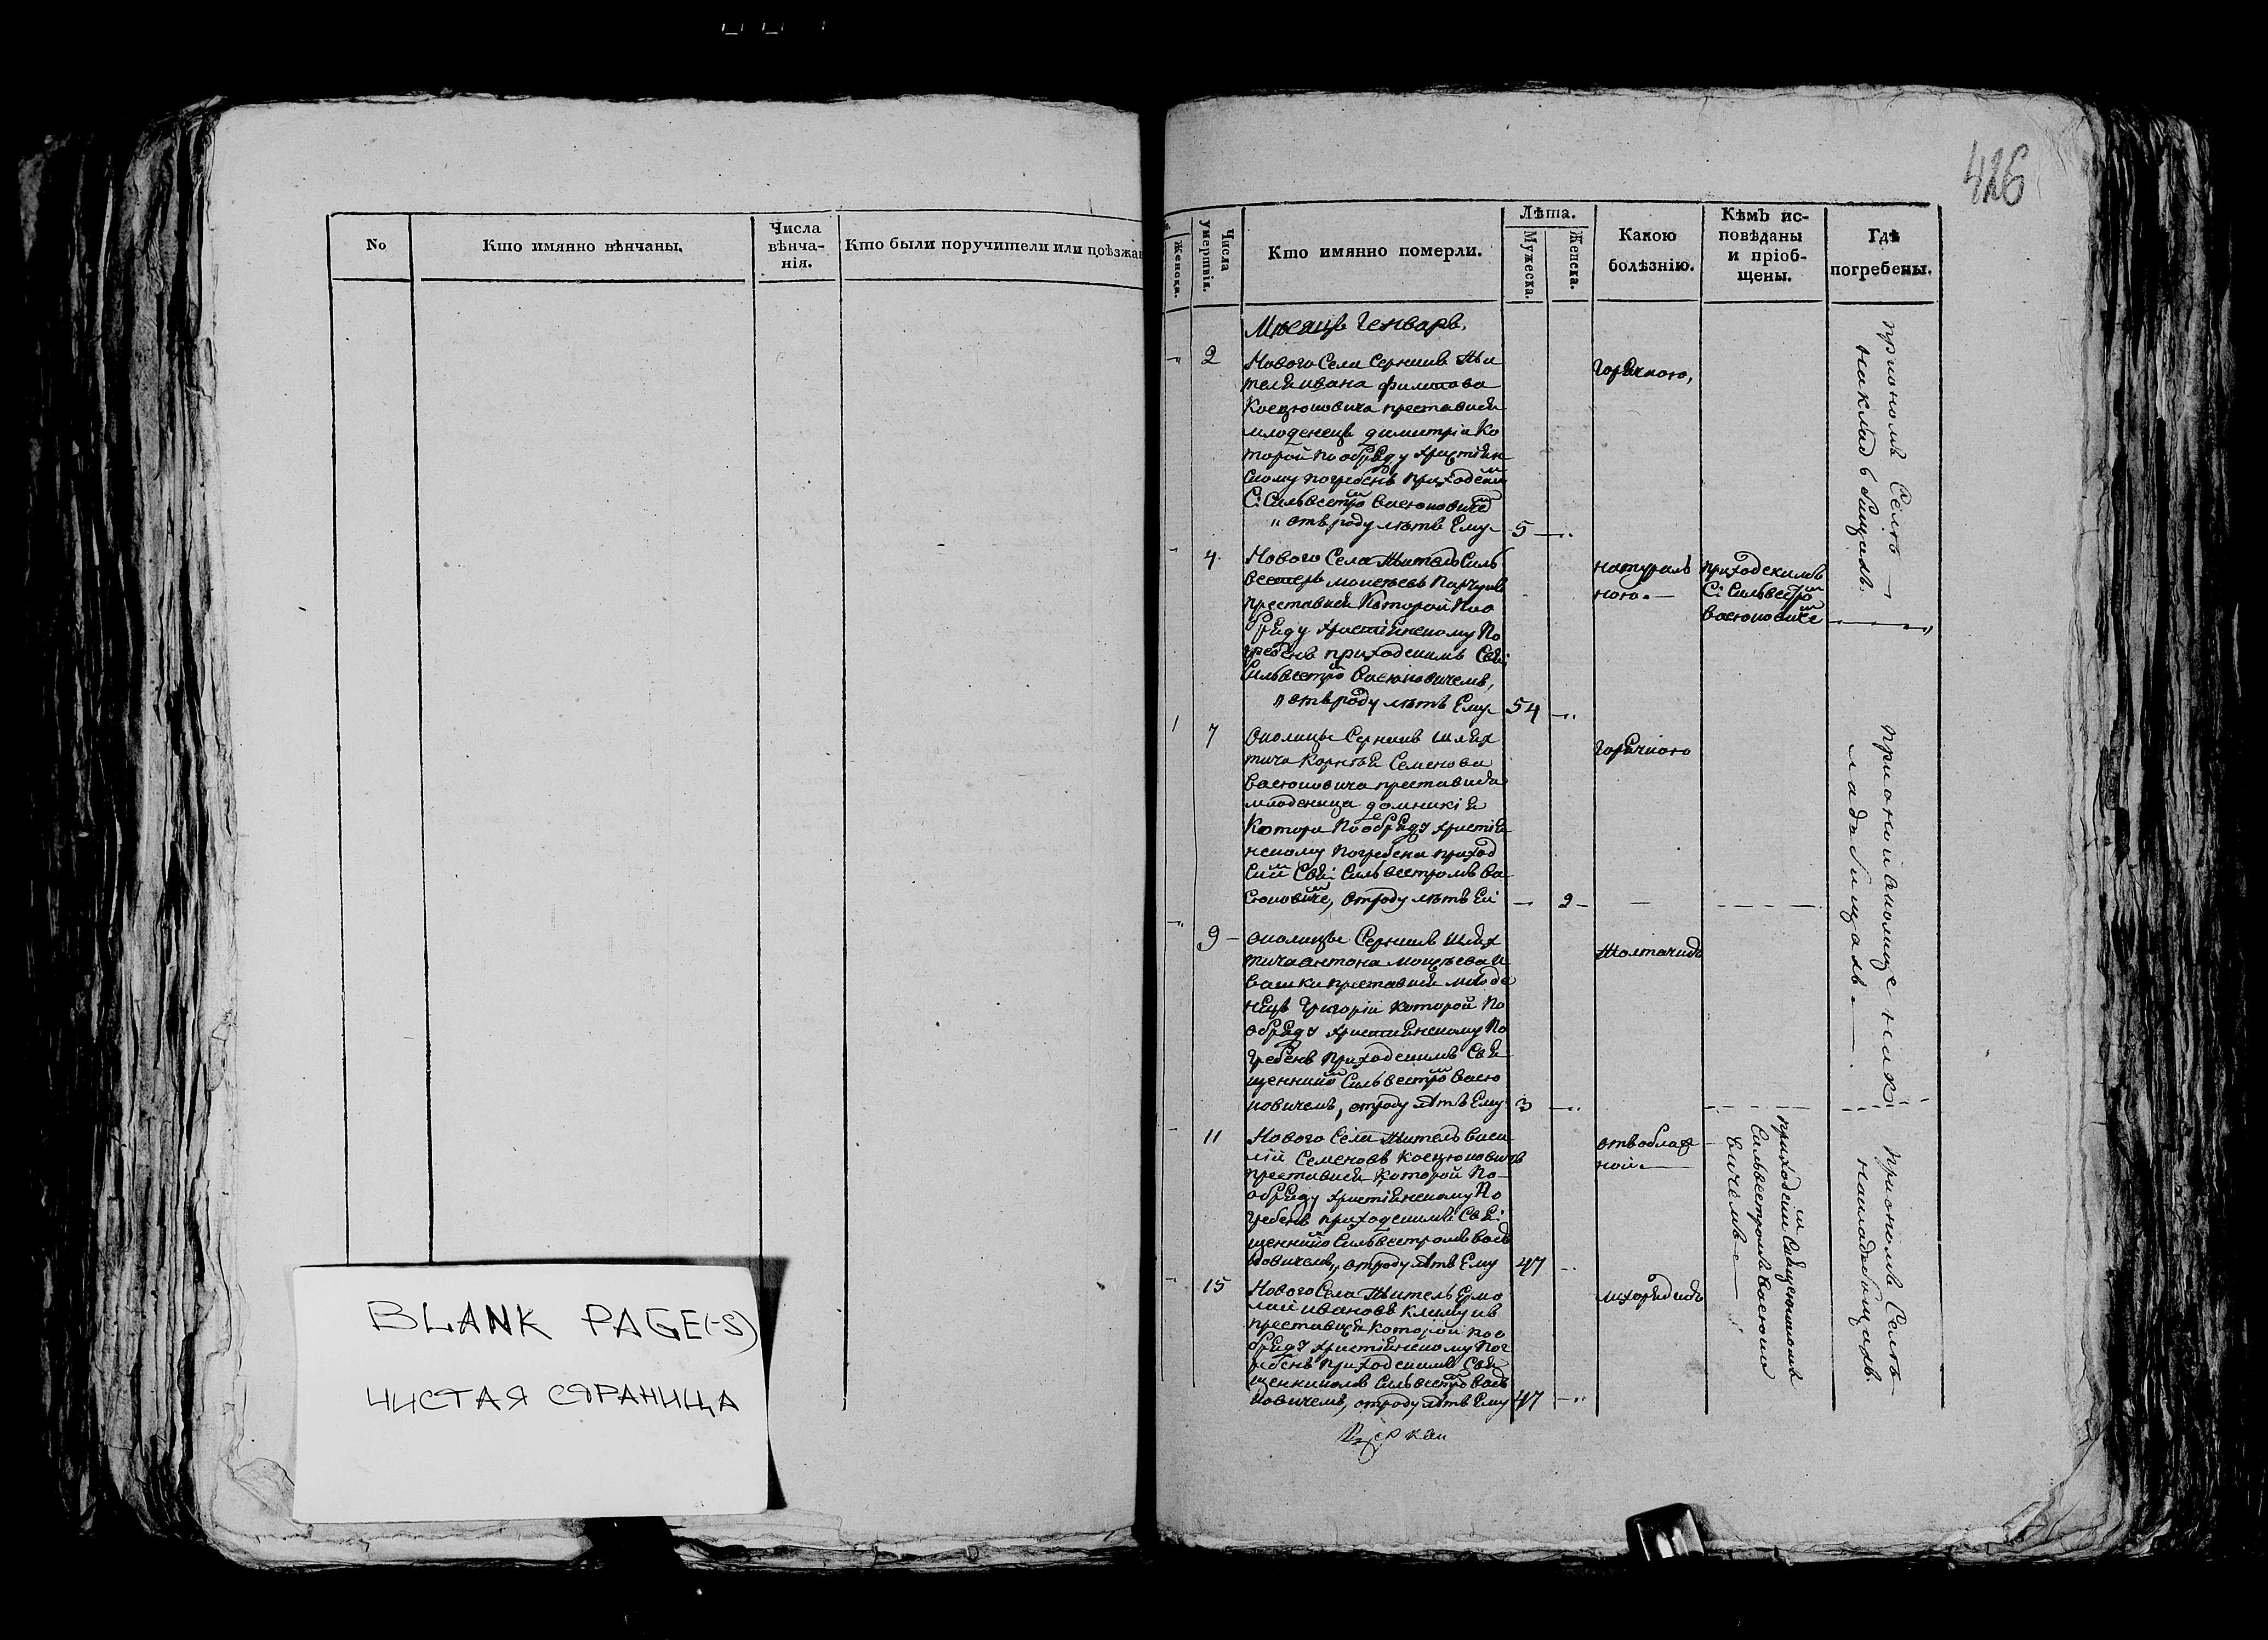 426
No
Кто имянно вѣнчаны.
Числа
вѣнча-
нія.
Кто были поручители или поѣзжан
BLANK PAGE(-S)
ЧИСТАЯ СТРАНИЦА
Женска.
Числа
умертвія.
Кто имянно померли.
Лѣта.
Мужеска.
Женска.
Какою
болѣзнію.
Кѣмъ ис-
повѣданы
и пріоб-
щены.
Гдѣ
погребены.
Мѣсяцъ Генварь.
2
Нового Села Серникъ Жи
теля ивана филипова
Коецюповича преставися
младенецъ димитрій Ко
торой по обряду христіян
скому погребенъ приходским
С: Силвестро Васюповиче
отъ роду лѣтъ Ему
5
Горячкою,
при ономъ Селѣ
на кладбищахъ.
4
Нового Села Житель Силь
вестеръ моисѣевъ
преставися Которой по о
бряду христіянскому по
гребенъ приходскимъ Свя:
Сильвестро Васюповичемъ,
отъ роду лѣтъ Ему
54
натураль
ною.
приходскимъ
С: Сильвестро
Васюповиче
7
Околицы Серникъ шлях
тича Корнѣя Семенова
Васюповича преставися
младеница домникія
Котора по обряду христія
нскому погребена приход
ским Свя: Сильвестромъ Ва
сюповиче, отроду лѣтъ Ей
2
Горячкою
при оной околице на к
ладбищахъ
9
околицы Серникъ шлях
тича антона моисѣева
преставися младе
нецъ григорій Которой по
обряду христіянскому по
гребенъ приходскимъ Свя
щеннико Сильвестро Васю
повичемъ, отроду лѣтъ Ему
3
11
Нового Села Житель Васи
лій Семеновъ Коецюповичъ
преставися Которой по
обряду христіянскому по
гребенъ приходскимъ Свя
щеннико Сильвестромъ Васю
повичемъ, отроду лѣтъ Ему
47
приходским Священникомъ
Сильвестромъ Васюпо
вичемъ
при ономъ Селѣ
на кладбищахъ.
15
Нового Села Житель Ермо
лай ивановъ
преставися Которой по о
бряду христіянскому пог
ребенъ приходскимъ Свя
щенникомъ Сильвестро Васю
повичемъ, отроду лѣтъ Ему
47